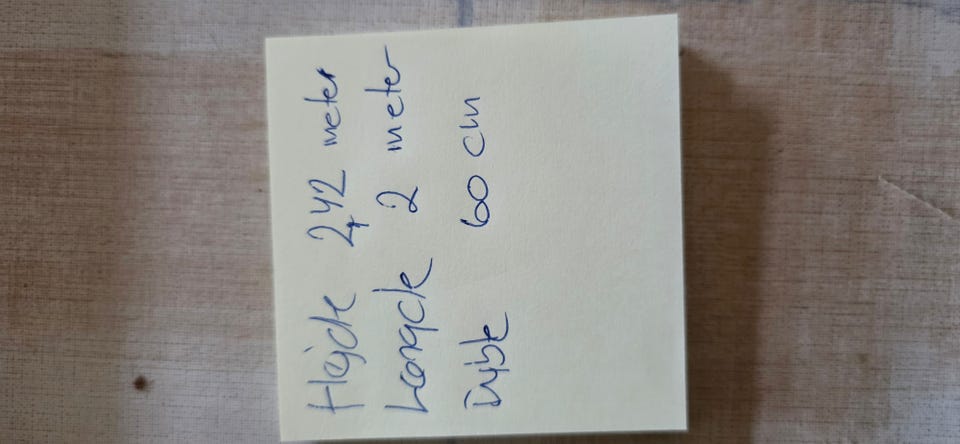 Højde 2,42 meter
Længde 2 meter
Dybde 60 cm